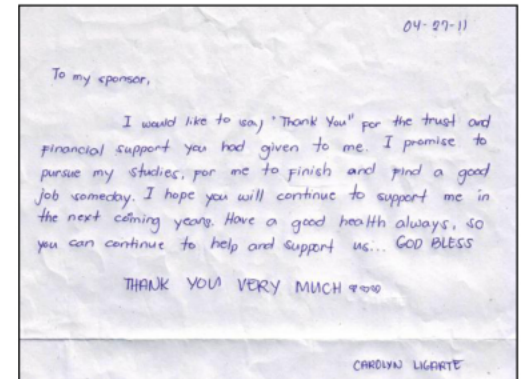 04-27-11
To my sponsor,
I would like to say "Thank You" for the trust and
financial support you had given to me. I promise to
pursue my studies, for me to finish and find a good
job someday. I hope you will continue to support me in
the next coming years. Have a good health always, so
you can continue to help and support us... GOD BLESS
THANK YOU VERY MUCH
CAROLYN LIGARTE